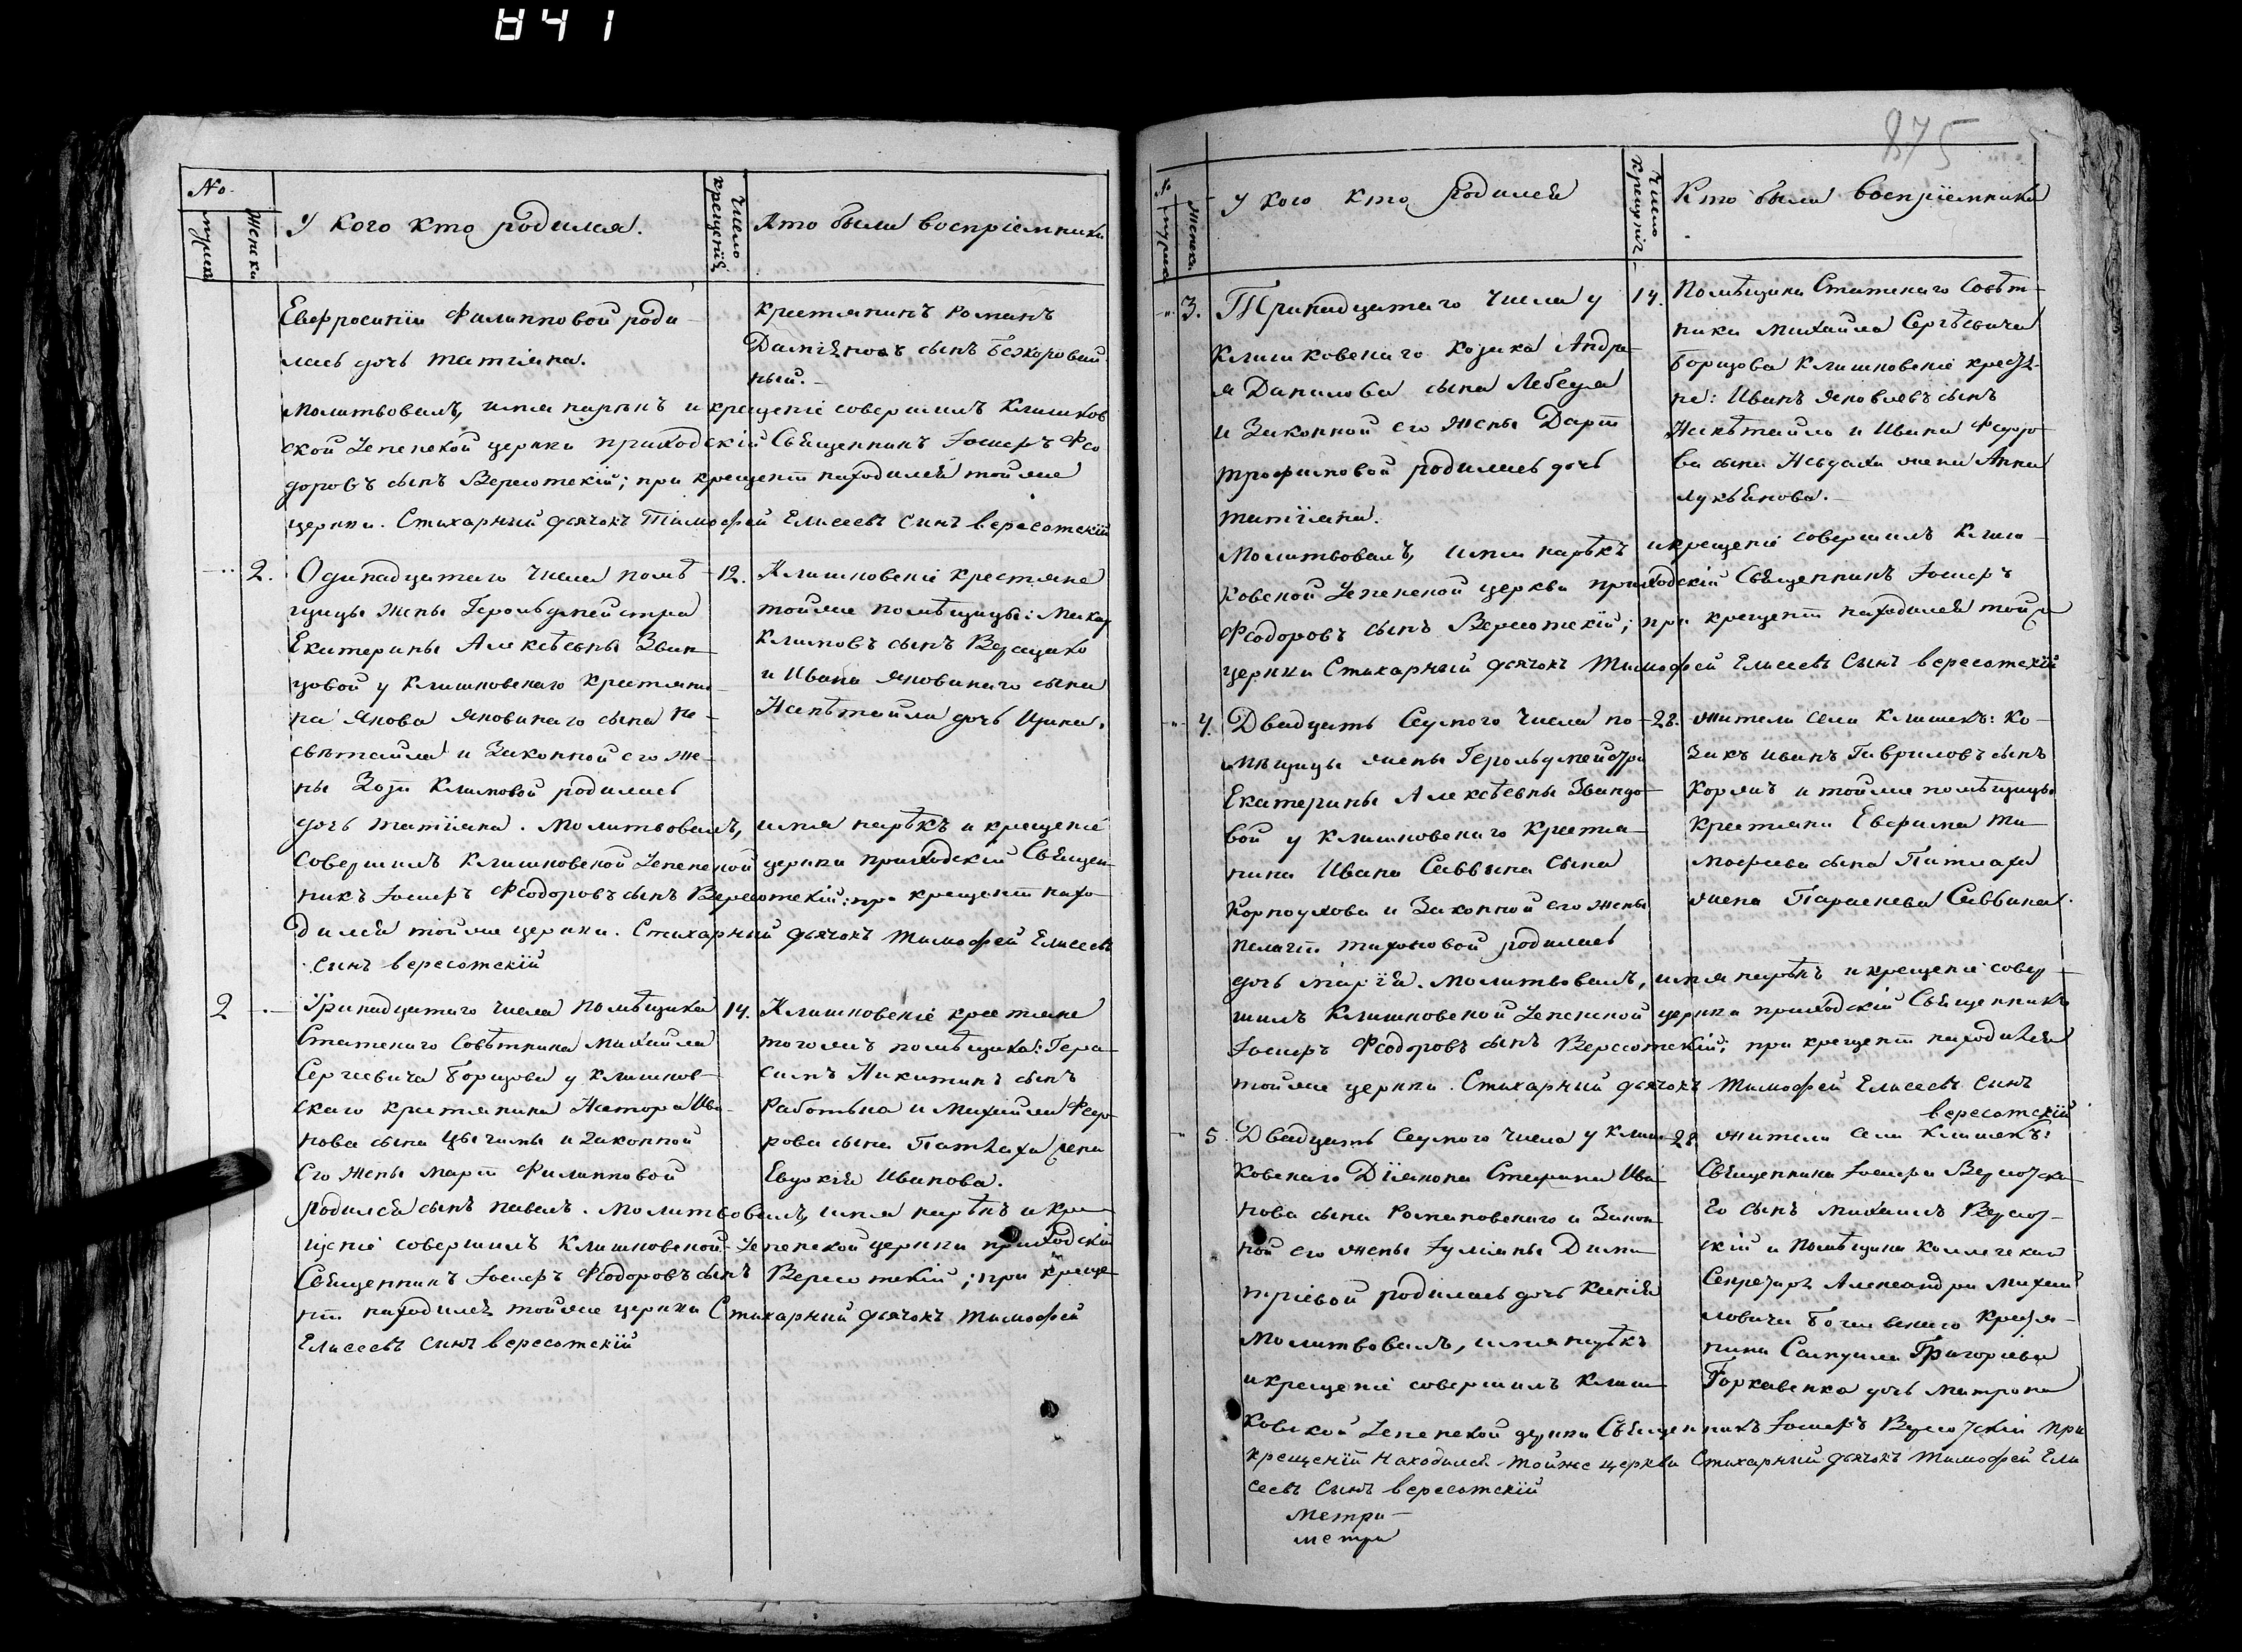 841
No
мужеск
женски
У кого кто родился.
Число
крещеній.
Кто были воспріемники
Евфросиніи Филипповой роди-
лась дочь Татіана.
крестянинъ Романъ
сынъ Безкоровай
ный.
Молитвовалъ, имя нарѣкъ и крещеніе совершилъ Клишков
ской Успенской церкви приходскій Священникъ Іосифъ Фео
доровъ сынъ Вересотскій; при крещеніи находился тойже
церкви. Стихарный дьячокъ Тимофей Елисеевъ синъ вересотскій
2.
Одинадцатаго числа помѣ-
щицы жены Герольдмейстра
Екатерины Алексѣевны Звин-
цовой у Клишковскаго крестяни-
на Якова Яковинаго сына Не-
свѣтайла и Законной его же-
ны Зоѣи Климовой родилась
12.
Клишковскіе крестяне
тойже помѣщицы: Макар
Климовъ сынъ Верещако
и Ивана Яковинаго сына
Несвѣтайла дочь Ирина.
дочь Татіяна. Молитвовалъ, имя нарѣкъ и крещеніе
совершилъ Клишковской Успенской церкви приходскій Священ-
никъ Іосифъ Феодоровъ сынъ Вересотскій; при крещеніи нахо-
дился тойже церкви. Стихарный дьячокъ Тимофей Елисеевъ
синъ вересотскій
2
Тринадцатаго числа помѣщика
Статскаго Совѣтника Михайла
Сергеевича Борщова у Клишков-
скаго крестянина Нестора Ива-
нова сына и законной
его жены Марѣи Филипповой
14.
Клишковскіе крестяне
тогожъ помѣщика: Гера-
симъ Никитинъ сынъ
Работька и Михайла Федо-
рова сына Патлаха жена
Евдокія Иванова.
родился сынъ Павелъ. Молитвовалъ, имя нарѣкъ и кре-
щеніе совершилъ Клишковской Успенской церкви приходскій
Священникъ Іосифъ Феодоровъ сынъ Вересотскій; при креще-
ніи находился тойже церкви Стихарный дьячокъ Тимофей
Елисеевъ синъ вересотскій
875
No
мужеск
женски
У кого кто родился
Число
крещеніе
Кто были воспріемники
3.
Тринадцатаго числа у
Клишковскаго Козака Андре-
я Данилова сына Лебедя
и Законной его жены Дарѣи
Трофимовой родилась дочь
Татіяна.
14.
Помѣщика Статскаго Совѣт-
ника Михайла Сергѣевича
Борщова Клишковскіе крестя-
не: Иванъ Яковлевъ сынъ
Несвѣтайло и Ивана Федоро-
ва сына жена Анна
Лукьянова.
Молитвовалъ, имя нарѣкъ и крещеніе совершилъ Клиш-
ковской Успенской церкви приходскій Священникъ Іосифъ
Феодоровъ сынъ Вересотскій; при крещеніи находился тойже
церкви Стихарный дьячокъ Тимофей Елисеевъ синъ вересотскій
4.
Двадцать Седмого числа по-
мѣщицы жены Герольдмейстра
Екатерины Алексѣевны Звинцо-
вой у Клишковскаго крестя-
нина Ивана Саввина сына
Корноухова и Законной его жены
Пелагѣи Тихоновой родилась
28.
жители села Клишекъ: Ко-
закъ Иванъ Гавриловъ сынъ
Коржъ и тойже помѣщицы
крестянина Евфима Ти-
мофеева сына Патлаха
жена Параскева Саввина.
дочь Марія. Молитвовалъ, имя нарѣкъ и крещеніе совер-
шилъ Клишковской Успенской церкви приходскій Священникъ
Іосифъ Феодоровъ сынъ Вересотскій; при крещеніи находился
тойже церкви. Стихарный дьячокъ Тимофей Елисеевъ синъ
вересотскій
5.
Двадцать седмого числа у Клиш-
ковскаго Діякона Стефана Ива-
нова сына Романовскаго и Закон-
ной его жены Іуліяны Дими-
тріевой родилась дочь Ксенія
Молитвовалъ, имя нарѣкъ
и крещеніе совершилъ Клиш-
28.
жители села Клишекъ:
Священника Іосифа Вересотска-
го сынъ Михаилъ Вересот-
скій и помѣщика Коллегскаго
Секретаря Александра Михай-
ловича крестя-
нина Самуила Григорьева
Горкавенка дочь Матрона
ковской Успенской церкви Священникъ Іосифъ Вересотскій при
крещеніи находился тойже церкви Стихарный дьячокъ Тимофей Ели
сеевъ синъ вересотскій
Метри-
метри